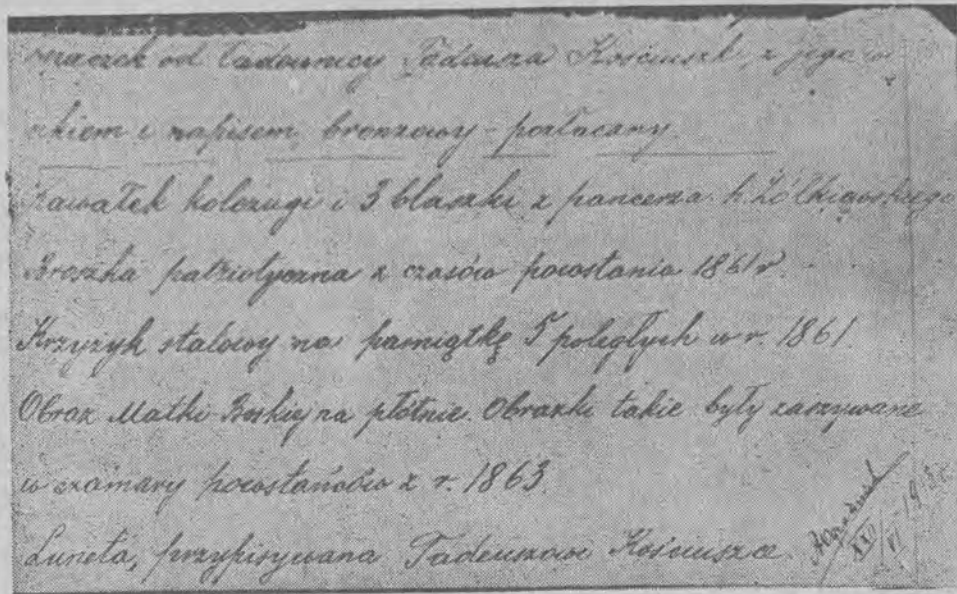 od ładownicy Tadeusza Kościuszki, z jego
i napisem, bronzowy - pozłacany.
Kawałek kolczugi i 3 blaszki z pancerza h. Żółkiewskiego
Broszka patriotyczna z czasów powstania 1861 r.
Krzyżyk stalowy na pamiątkę 5 poległych w r. 1861.
Obraz Matki Boskiej na płótnie. Obrazki takie były zaszywane
w czamary powstańców z r. 1863.
Luneta, przypisywana Tadeuszowi Kościuszce.